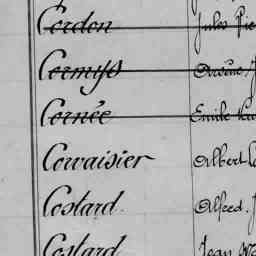 Cordon Jules
Cormiss
Cornée Emile
Corvaisier Albert
Costard. Alfred.
Costard Jean